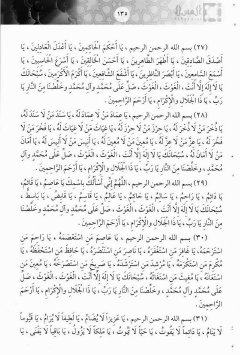 ١٣٥
(٢٧) بسم الله الرحمن الرحيم ، يَا أَحْكَمَ الْحَاكِمِينَ ، يَا أَعْدَلَ الْعَادِلِينَ ، يَا
أَصْدَقَ الصَّادِقِينَ ، يَا أَطْهَرَ الطَّاهِرِينَ ، يَا أَحْسَنَ الْخَالِقِينَ ، يَا أَسْرَعَ الْحَاسِبِينَ ، يَا
أَسْمَعَ السَّامِعِينَ ، يَا أَبْصَرَ النَّاظِرِينَ ، يَا أَشْفَعَ الشَّافِعِينَ ، يَا أَكْرَمَ الْأَكْرَمِينَ ، سُبْحَانَكَ
يَا لَا إِلَهَ إِلَّا أَنْتَ ، الْغَوْثَ ، الْغَوْثَ ، صَلِّ عَلَى مُحَمَّدٍ وَآلِ مُحَمَّدٍ وَخَلِّصْنَا مِنَ النَّارِ يَا
رَبِّ ، يَا ذَا الْجَلَالِ وَالْإِكْرَامِ ، يَا أَرْحَمَ الرَّاحِمِينَ .
(٢٨) بسم الله الرحمن الرحيم ، يَا عِمَادَ مَنْ لَا عِمَادَ لَهُ ، يَا سَنَدَ مَنْ لَا سَنَدَ لَهُ ،
يَا ذُخْرَ مَنْ لَا ذُخْرَ لَهُ ، يَا حِرْزَ مَنْ لَا حِرْزَ لَهُ ، يَا غِيَاثَ مَنْ لَا غِيَاثَ لَهُ ، يَا فَخْرَ مَنْ لَا
فَخْرَ لَهُ ، يَا عِزَّ مَنْ لَا عِزَّ لَهُ ، يَا مُعِينَ مَنْ لَا مُعِينَ لَهُ ، يَا أَنِيسَ مَنْ لَا أَنِيسَ لَهُ ، يَا أَمَانَ
مَنْ لَا أَمَانَ لَهُ ، سُبْحَانَكَ يَا لَا إِلَهَ إِلَّا أَنْتَ ، الْغَوْثَ ، الْغَوْثَ ، صَلِّ عَلَى مُحَمَّدٍ وَآلِ
مُحَمَّدٍ ، وَخَلِّصْنَا مِنَ النَّارِ يَا رَبِّ ، يَا ذَا الْجَلَالِ وَالْإِكْرَامِ ، يَا أَرْحَمَ الرَّاحِمِينَ .
(٢٩) بسم الله الرحمن الرحيم ، اللَّهُمَّ إِنِّي أَسْأَلُكَ بِاسْمِكَ يَا عَاصِمُ ، يَا قَائِمُ ،
يَا دَائِمُ ، يَا رَاحِمُ ، يَا سَالِمُ ، يَا حَاكِمُ ، يَا عَالِمُ ، يَا قَاسِمُ ، يَا قَابِضُ ، يَا بَاسِطُ ،
سُبْحَانَكَ يَا لَا إِلَهَ إِلَّا أَنْتَ ، الْغَوْثَ ، الْغَوْثَ ، صَلِّ عَلَى مُحَمَّدٍ وَآلِ مُحَمَّدٍ وَخَلِّصْنَا
مِنَ النَّارِ يَا رَبِّ ، يَا ذَا الْجَلَالِ وَالْإِكْرَامِ ، يَا أَرْحَمَ الرَّاحِمِينَ .
(٣٠) بسم الله الرحمن الرحيم ، يَا عَاصِمَ مَنِ اسْتَعْصَمَهُ ، يَا رَاحِمَ مَنِ
اسْتَرْحَمَهُ ، يَا غَافِرَ مَنِ اسْتَغْفَرَهُ ، يَا نَاصِرَ مَنِ اسْتَنْصَرَهُ ، يَا حَافِظَ مَنِ اسْتَحْفَظَهُ ، يَا
مُكْرِمَ مَنِ اسْتَكْرَمَهُ ، يَا مُرْشِدَ مَنِ اسْتَرْشَدَهُ ، يَا صَرِيخَ مَنِ اسْتَصْرَخَهُ ، يَا مُعِينَ مَنِ
اسْتَعَانَهُ ، يَا مُغِيثَ مَنِ اسْتَغَاثَهُ ، سُبْحَانَكَ يَا لَا إِلَهَ إِلَّا أَنْتَ ، الْغَوْثَ ، الْغَوْثَ ، صَلِّ
عَلَى مُحَمَّدٍ وَآلِ مُحَمَّدٍ ، وَخَلِّصْنَا مِنَ النَّارِ يَا رَبِّ ، يَا ذَا الْجَلَالِ وَالْإِكْرَامِ ، يَا أَرْحَمَ
الرَّاحِمِينَ .
(٣١) بسم الله الرحمن الرحيم ، يَا عَزِيزاً لَا يُضَامُ ، يَا لَطِيفاً لَا يُرَامُ ، يَا قَيُّوماً
لَا يَنَامُ ، يَا دَائِماً لَا يَفُوتُ ، يَا حَيّاً لَا يَمُوتُ ، يَا مَلِكاً لَا يَزُولُ ، يَا بَاقِياً لَا يَفْنَى ، يَا